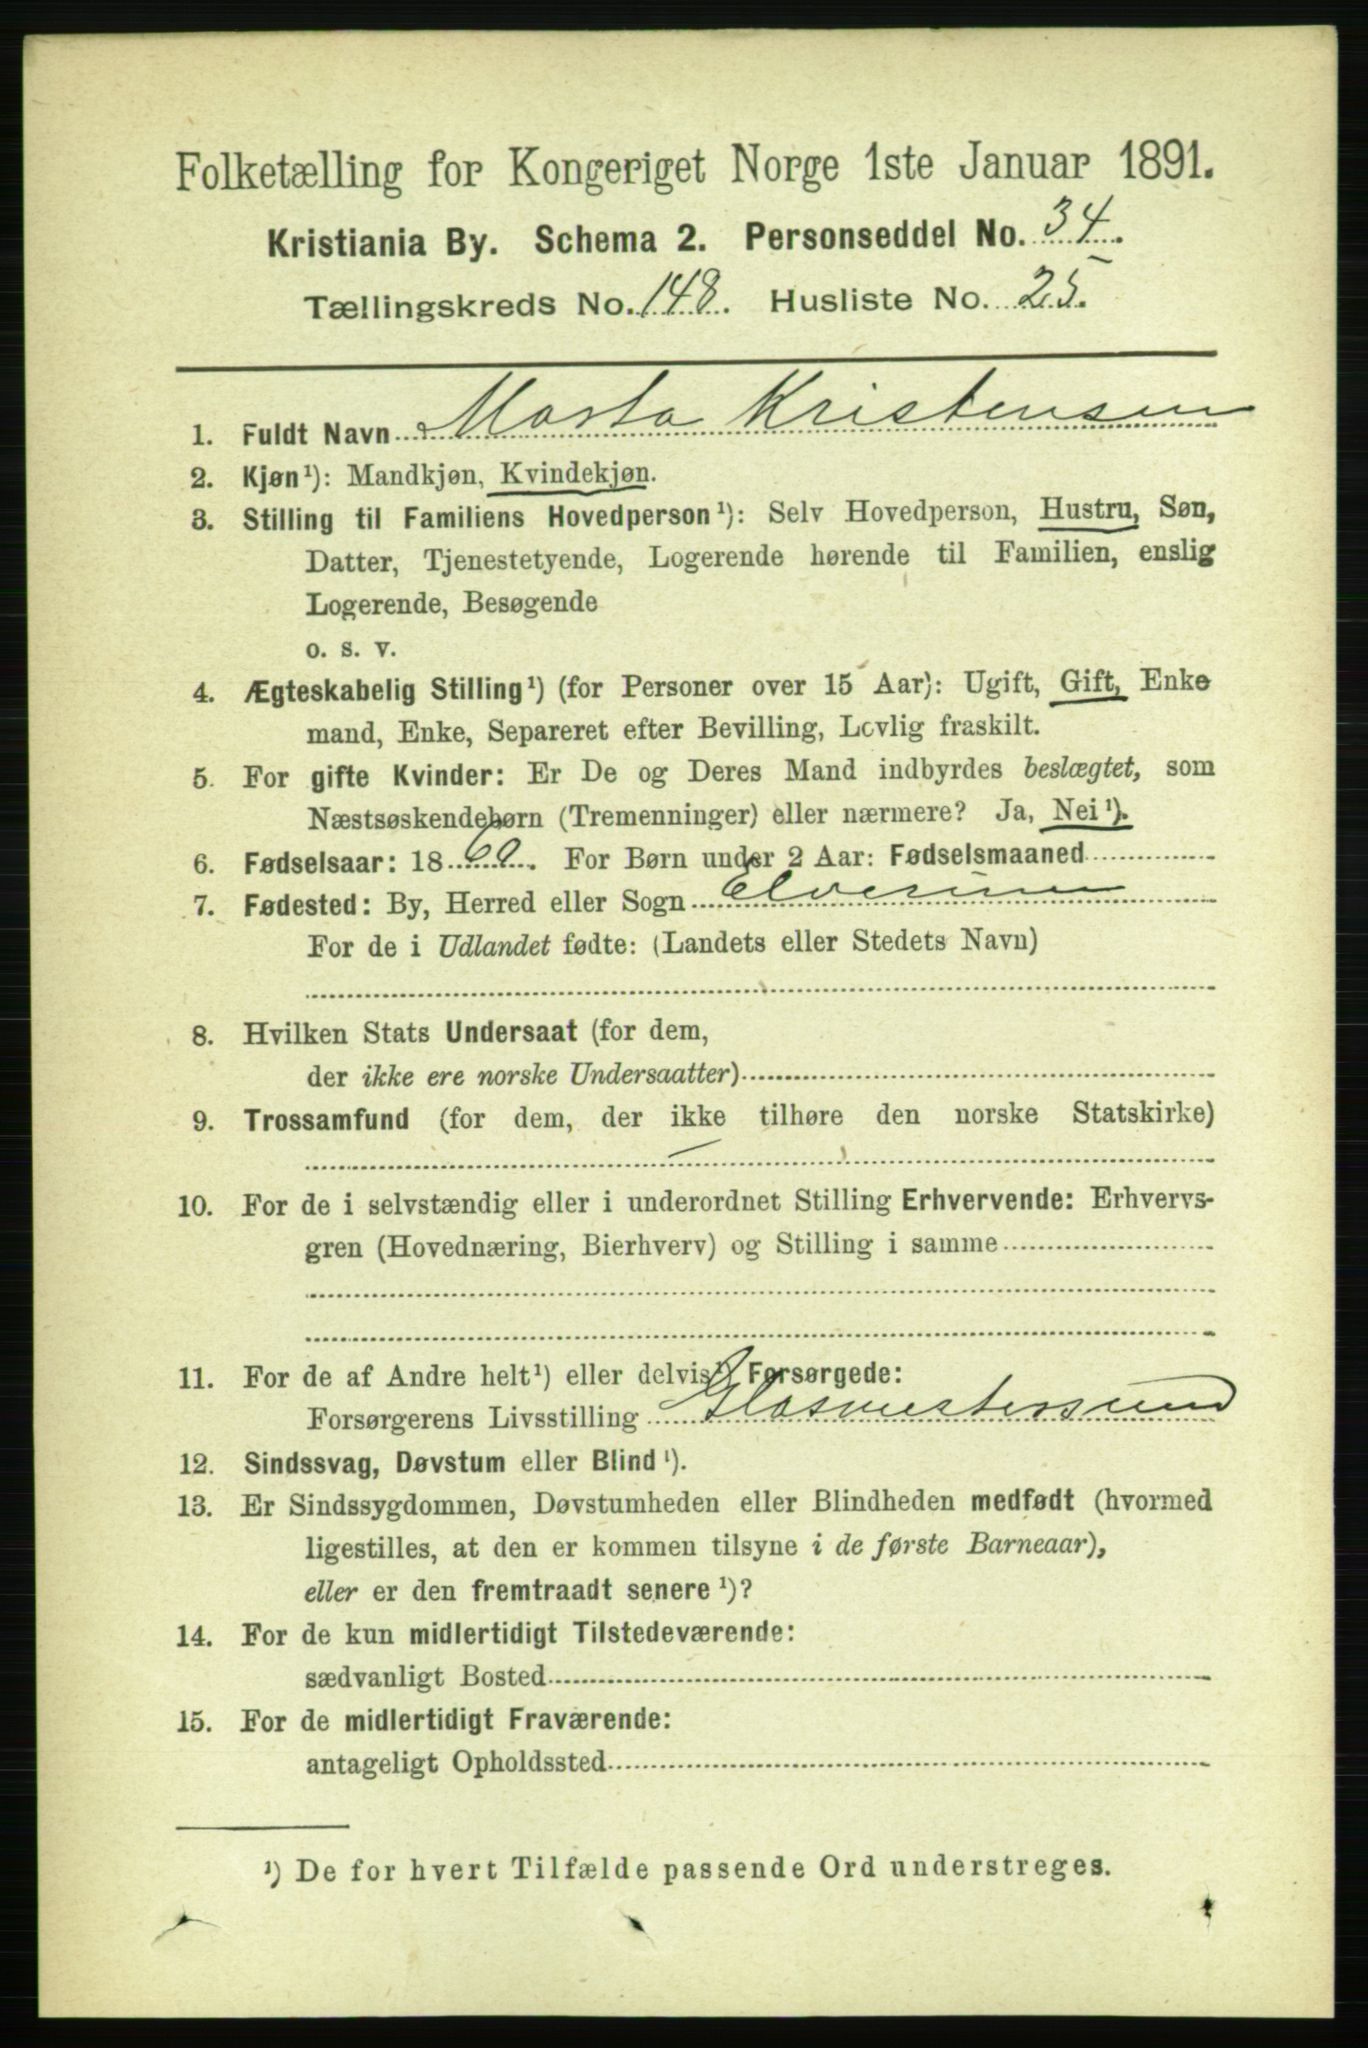 Folketælling for Kongeriget Norge 1ste Januar 1891.
Kristiania By. Schema 2. Personseddel No. 34.
Tællingskreds No. 148. Husliste No. 25.
1. Fuldt Navn Marta Kristensen
2. Kjøn¹): Mandkjøn, Kvindekjøn.
3. Stilling til Familiens Hovedperson¹): Selv Hovedperson, Hustru, Søn,
Datter, Tjenestetyende, Logerende hørende til Familien, enslig
Logerende, Besøgende
o. s. v.
4. Ægteskabelig Stilling¹) (for Personer over 15 Aar): Ugift, Gift, Enke
mand, Enke, Separeret efter Bevilling, Lovlig fraskilt.
5. For gifte Kvinder: Er De og Deres Mand indbyrdes beslægtet, som
Næstsøskendebørn (Tremenninger) eller nærmere? Ja, Nei¹).
6. Fødselsaar: 18 60. For Børn under 2 Aar: Fødselsmaaned
7. Fødested: By, Herred eller Sogn Elverum
For de i Udlandet fødte: (Landets eller Stedets Navn)
8. Hvilken Stats Undersaat (for dem,
der ikke ere norske Undersaatter)
9. Trossamfund (for dem, der ikke tilhøre den norske Statskirke)
10. For de i selvstændig eller i underordnet Stilling Erhvervende: Erhvervs-
gren (Hovednæring, Bierhverv) og Stilling i samme
11. For de af Andre helt¹) eller delvis¹) Forsørgede:
Forsørgerens Livsstilling Glasmestersvend
12. Sindssvag, Døvstum eller Blind¹).
13. Er Sindssygdommen, Døvstumheden eller Blindheden medfødt (hvormed
ligestilles, at den er kommen tilsyne i de første Barneaar),
eller er den fremtraadt senere¹)?
14. For de kun midlertidigt Tilstedeværende:
sædvanligt Bosted
15. For de midlertidigt Fraværende:
antageligt Opholdssted
¹) De for hvert Tilfælde passende Ord understreges.